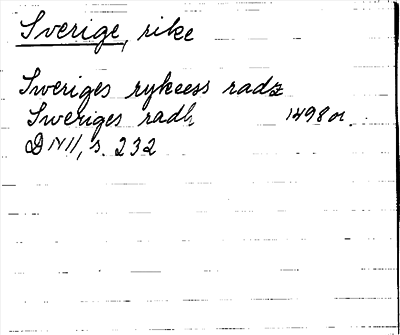 Sverige, rike
Sweriges rykcess radz
Sweriges radh 1498 or.
DN II, s. 232